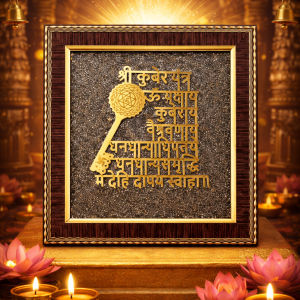 श्री कुबेर यंत्र
ॐ यक्षाय
कुबेराय
वैश्रवणाय
धनधान्याधिपतये
धनधान्यसमृद्धिं
मे देहि दापय स्वाहा॥